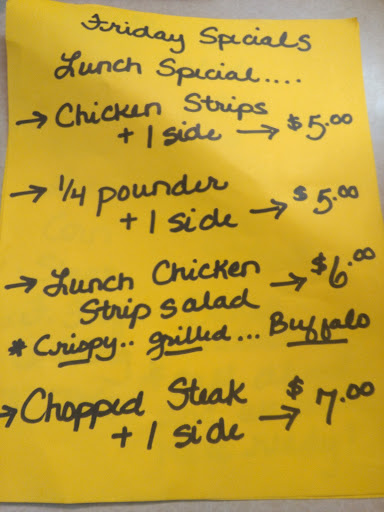 Friday Specials
Lunch Special....
→ Chicken Strips
+ 1 side → $5.00
→ 1/4 pounder
+ 1 side → $5.00
→ Lunch Chicken → $6.00
Strip salad
* Crispy.. grilled... Buffalo
→ Chopped Steak
+ 1 side → $7.00